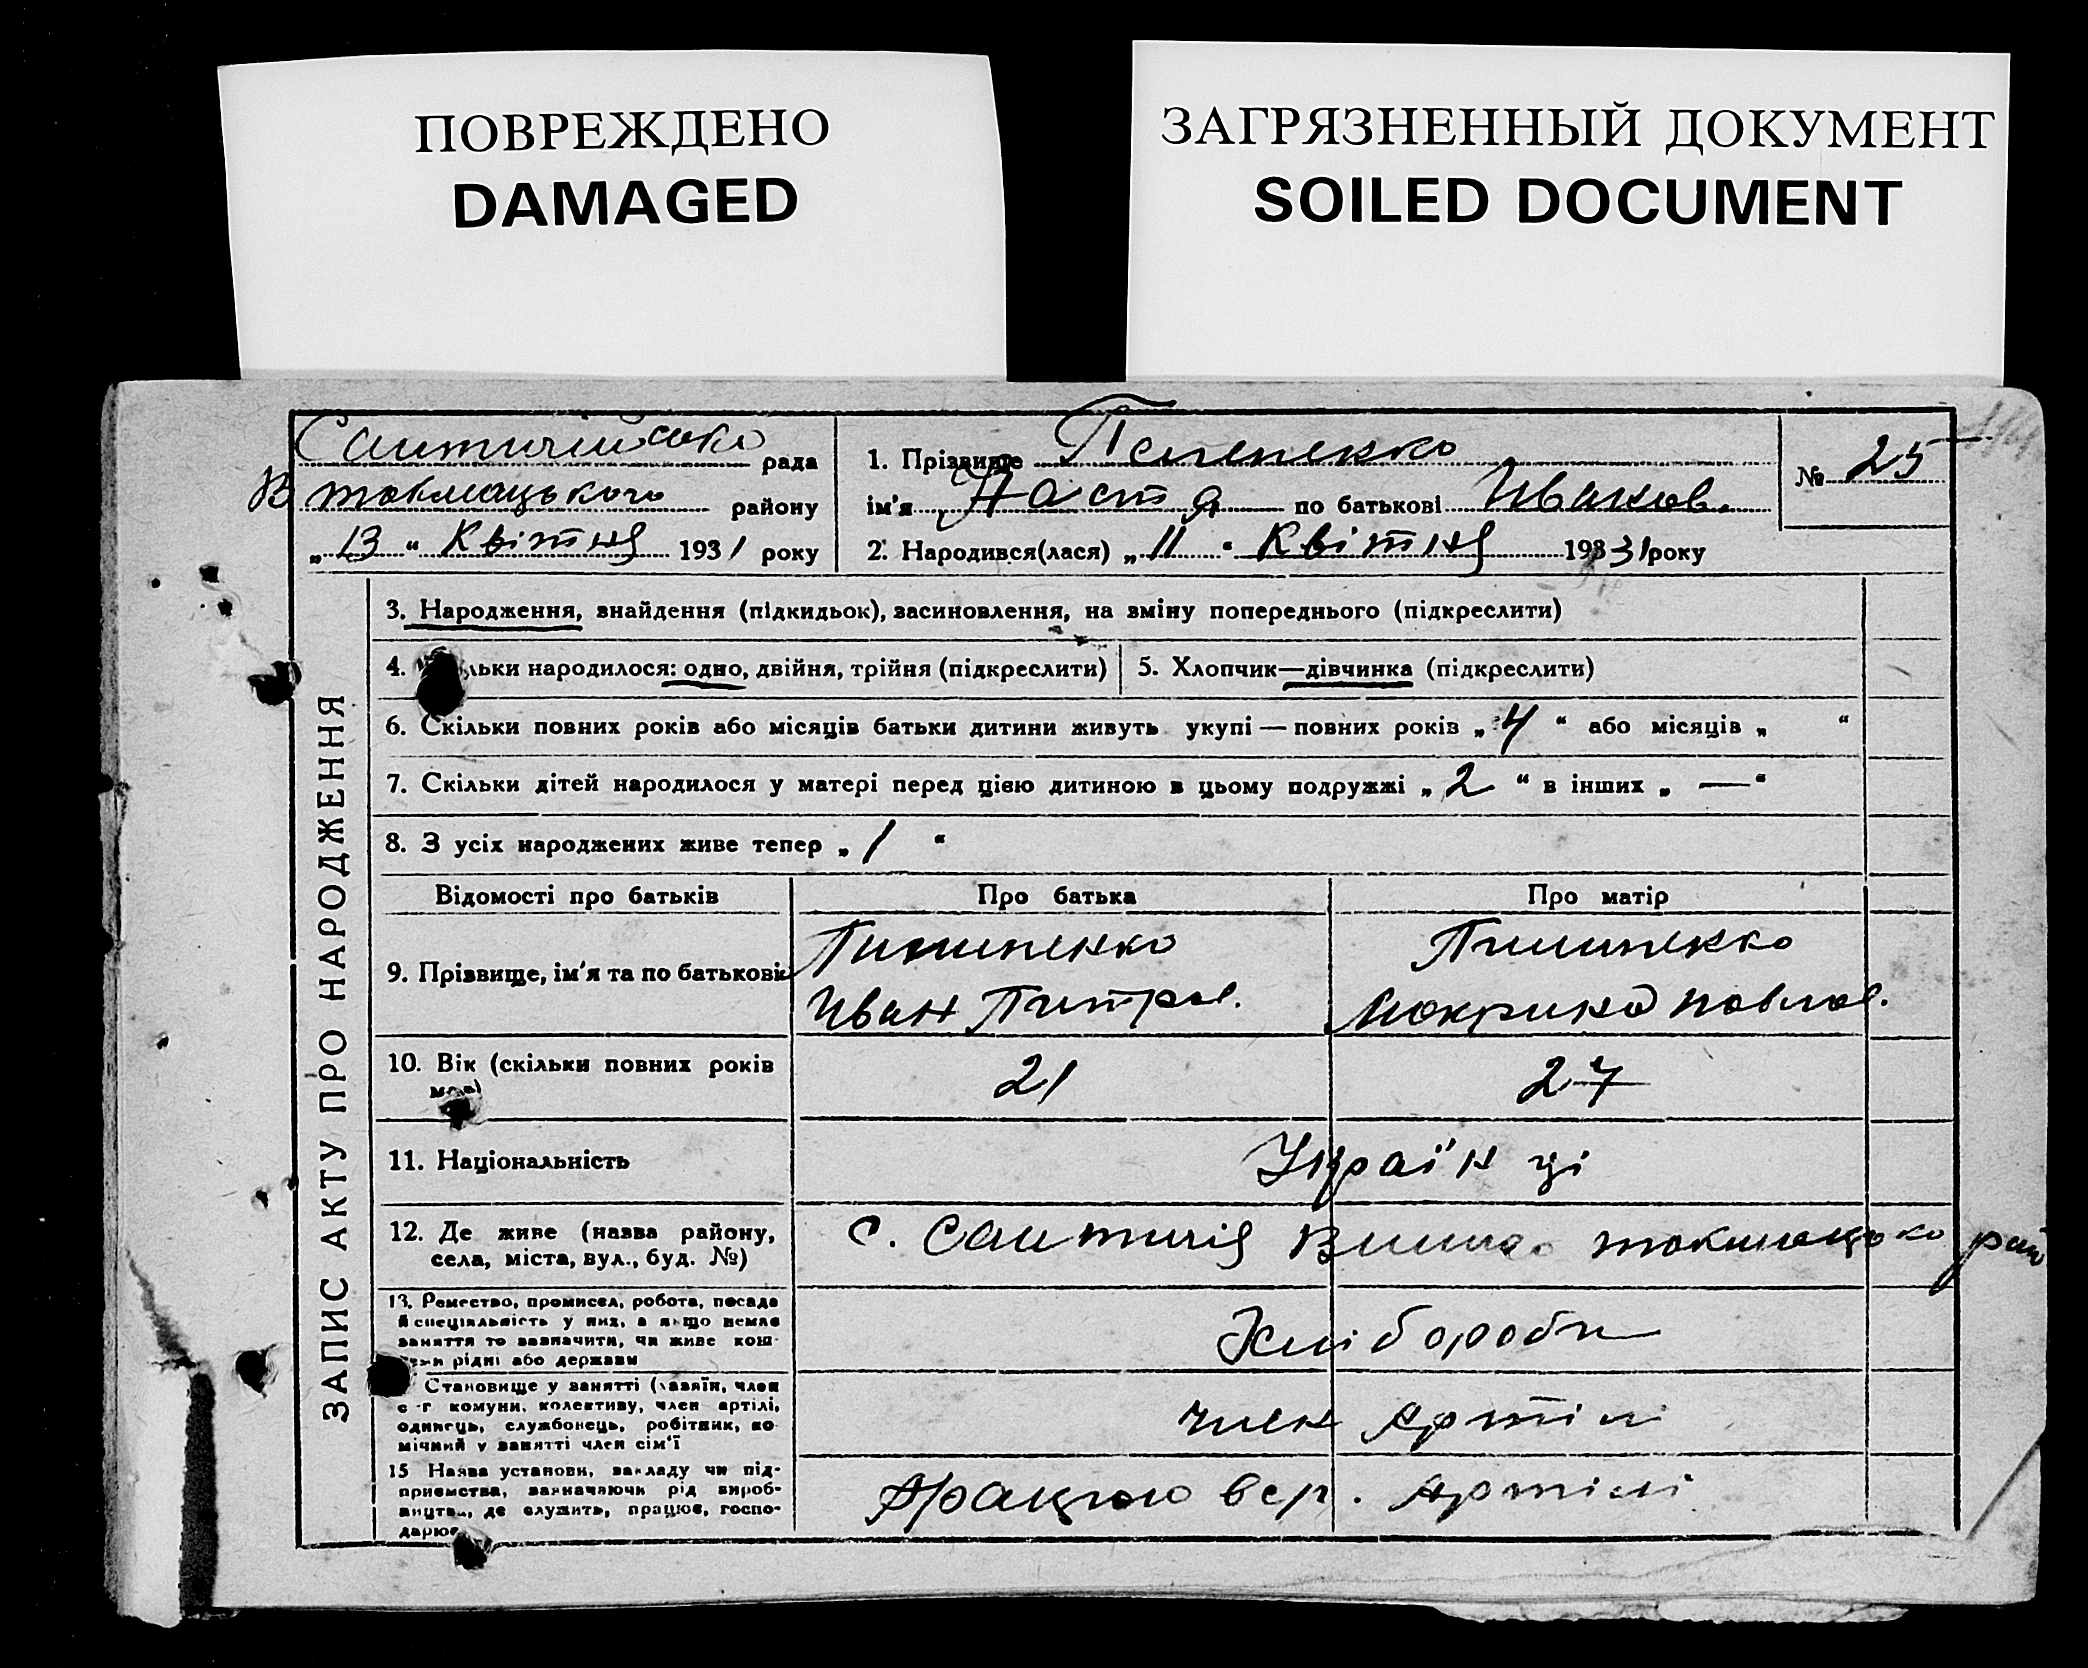 ПОВРЕЖДЕНО
DAMAGED
ЗАГРЯЗНЕННЫЙ ДОКУМЕНТ
SOILED DOCUMENT
рада
В токмацького району
„ 13 “ Квітня 1931 року
1. Прізвище
ім'я Настя по батькові Иванов.
2. Народився(лася) „ 11 “ Квітня 1931 року
№ 25
ЗАПИС АКТУ ПРО НАРОДЖЕННЯ
3. Народження, знайдення (підкидьок), засиновлення, на зміну попереднього (підкреслити)
4. льки народилося: одно, двійня, трійня (підкреслити)
5. Хлопчик—дівчинка (підкреслити)
6. Скільки повних років або місяців батьки дитини живуть укупі — повних років „ 4 “ або місяців „ “
7. Скільки дітей народилося у матері перед цією дитиною в цьому подружжі „ 2 “ в інших „ — “
8. З усіх народжених живе тепер „ 1 “
Відомості про батьків
Про батька
Про матір
9. Прізвище, ім'я та по батькові
Пилипенко
Иван Питров.
Пилипенко
Мокрина Павлов.
10. Вік (скільки повних років
має)
21
27
11. Національність
Україн ці
12. Де живе (назва району,
села, міста, вул., буд. №)
с. токмацько рай
13. Ремество, промисел, робота, посада
й спеціяльність у них, а якщо немає
заняття то зазначити, чи живе кош-
рідні або держави
Хлібороби
Становище у занятті (хазяїн, член
с-г комуни, колективу, член артілі,
одинець, службовець, робітник, по-
мічний у занятті член сім'ї
член Артілі
15 Назва установи, закладу чи під-
приємства, зазначаючи рід вироб-
ництва, де служить, працює, госпо-
дарює
Артілі